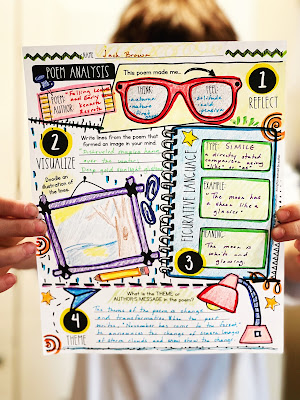 NAME Jack Brown
POEM ANALYSIS
This poem made me...
POEM: "Falling Leaves
and Early Snow"
AUTHOR: Kenneth
Rexroth
THINK:
autumn
nature
FEEL:
solitude
cold
1
REFLECT
2
VISUALIZE
Write lines from the poem that
formed an image in your mind.
over the water
Doodle an
illustration of
the lines.
FIGURATIVE LANGUAGE
TYPE: SIMILE
a directly stated
comparison using
"like" or "as"
EXAMPLE:
The moon has
a sheen like a
glacier.
MEANING:
The moon is
white and
glowing.
3
4
THEME
What is the THEME or
AUTHOR'S MESSAGE in the poem?
The theme of the poem is change
and transformation. When the poet
writes, "November has come to the forest,"
to announce the change of